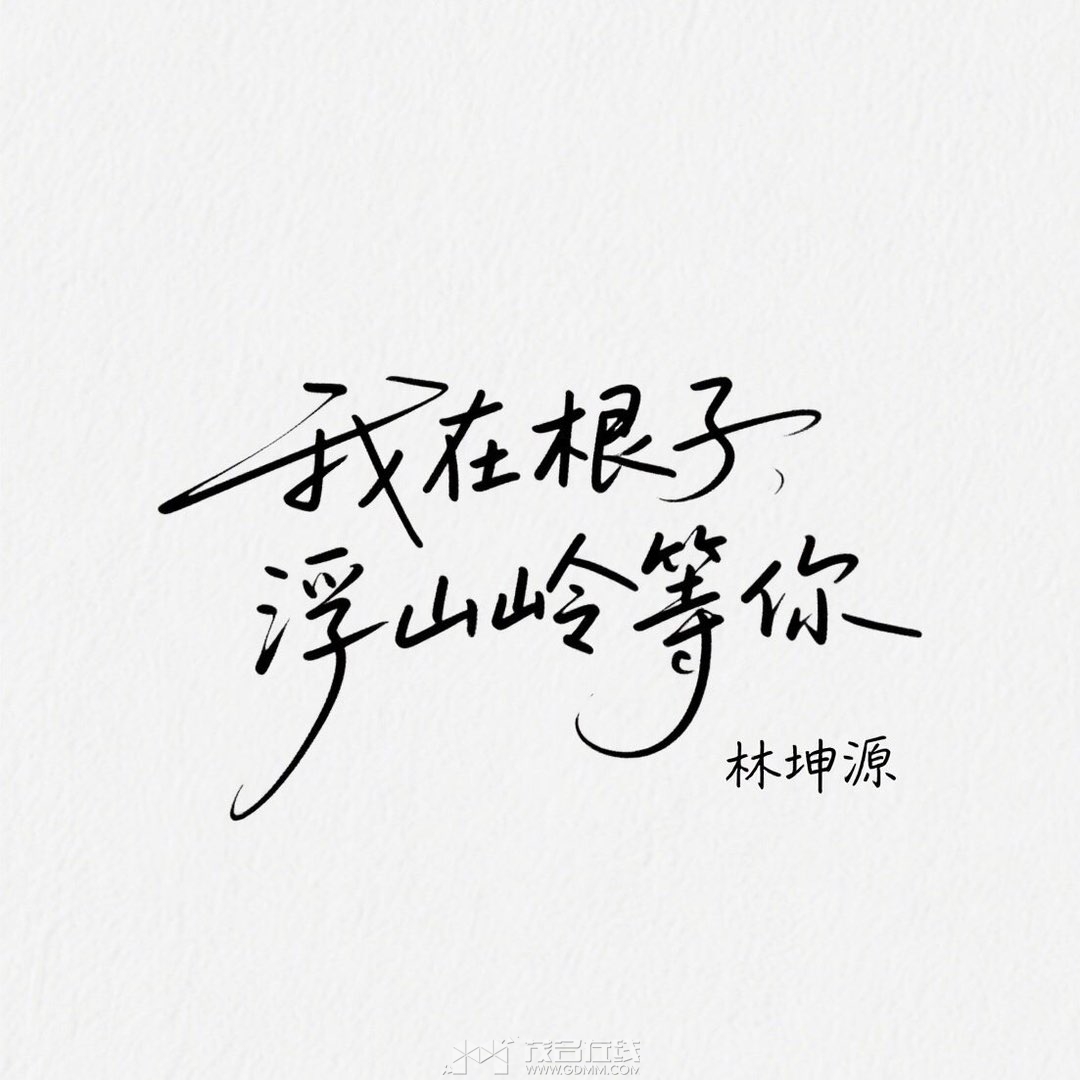 我在根子
浮山岭等你
林坤源
茂名在线
WWW.GDMM.COM